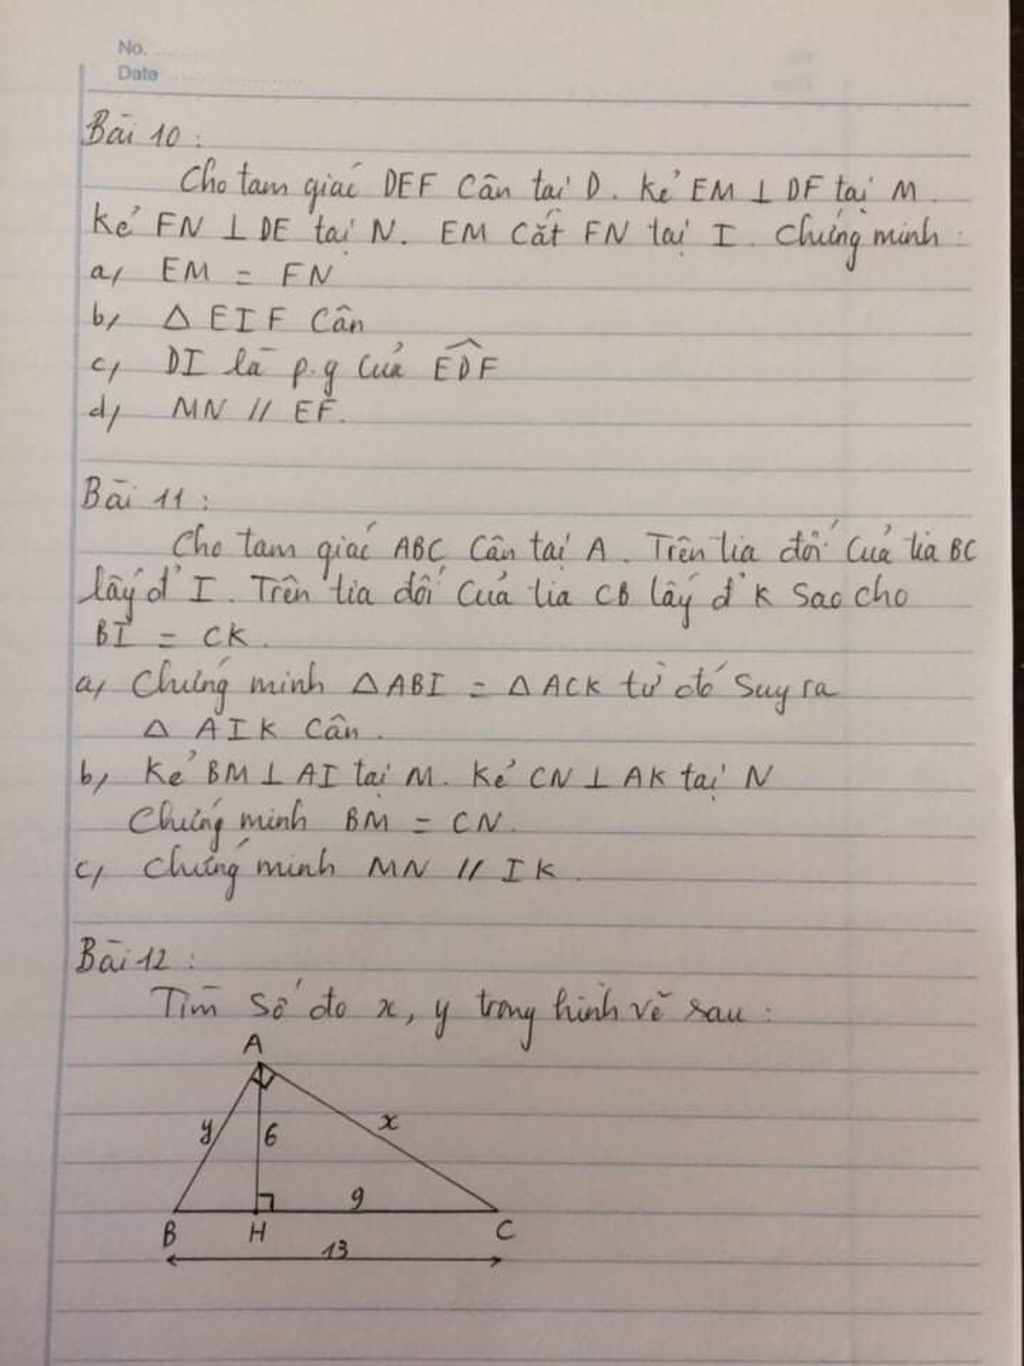 No.
Date
Bài 10 :
Cho tam giác DEF Cân tại D. Kẻ EM ⊥ DF tại M.
Kẻ FN ⊥ DE tại N. EM Cắt FN tại I. Chứng minh :
a, EM = FN
b, △ EIF Cân
c, DI là p.g Của EDF
d, MN // EF.
Bài 11 :
Cho tam giác ABC Cân tại A. Trên tia đối Của tia BC
lấy đ' I. Trên tia đối Của tia CB lấy đ' K Sao cho
BI = CK.
a, Chứng minh △ABI = △ACK từ đó Suy ra
△ AIK Cân.
b, Kẻ BM ⊥ AI tại M. Kẻ CN ⊥ AK tại N
Chứng minh BM = CN.
c, Chứng minh MN // IK.
Bài 12 :
Tìm Số đo x, y trong hình vẽ sau :
A
y 6 x
9
B H C
13